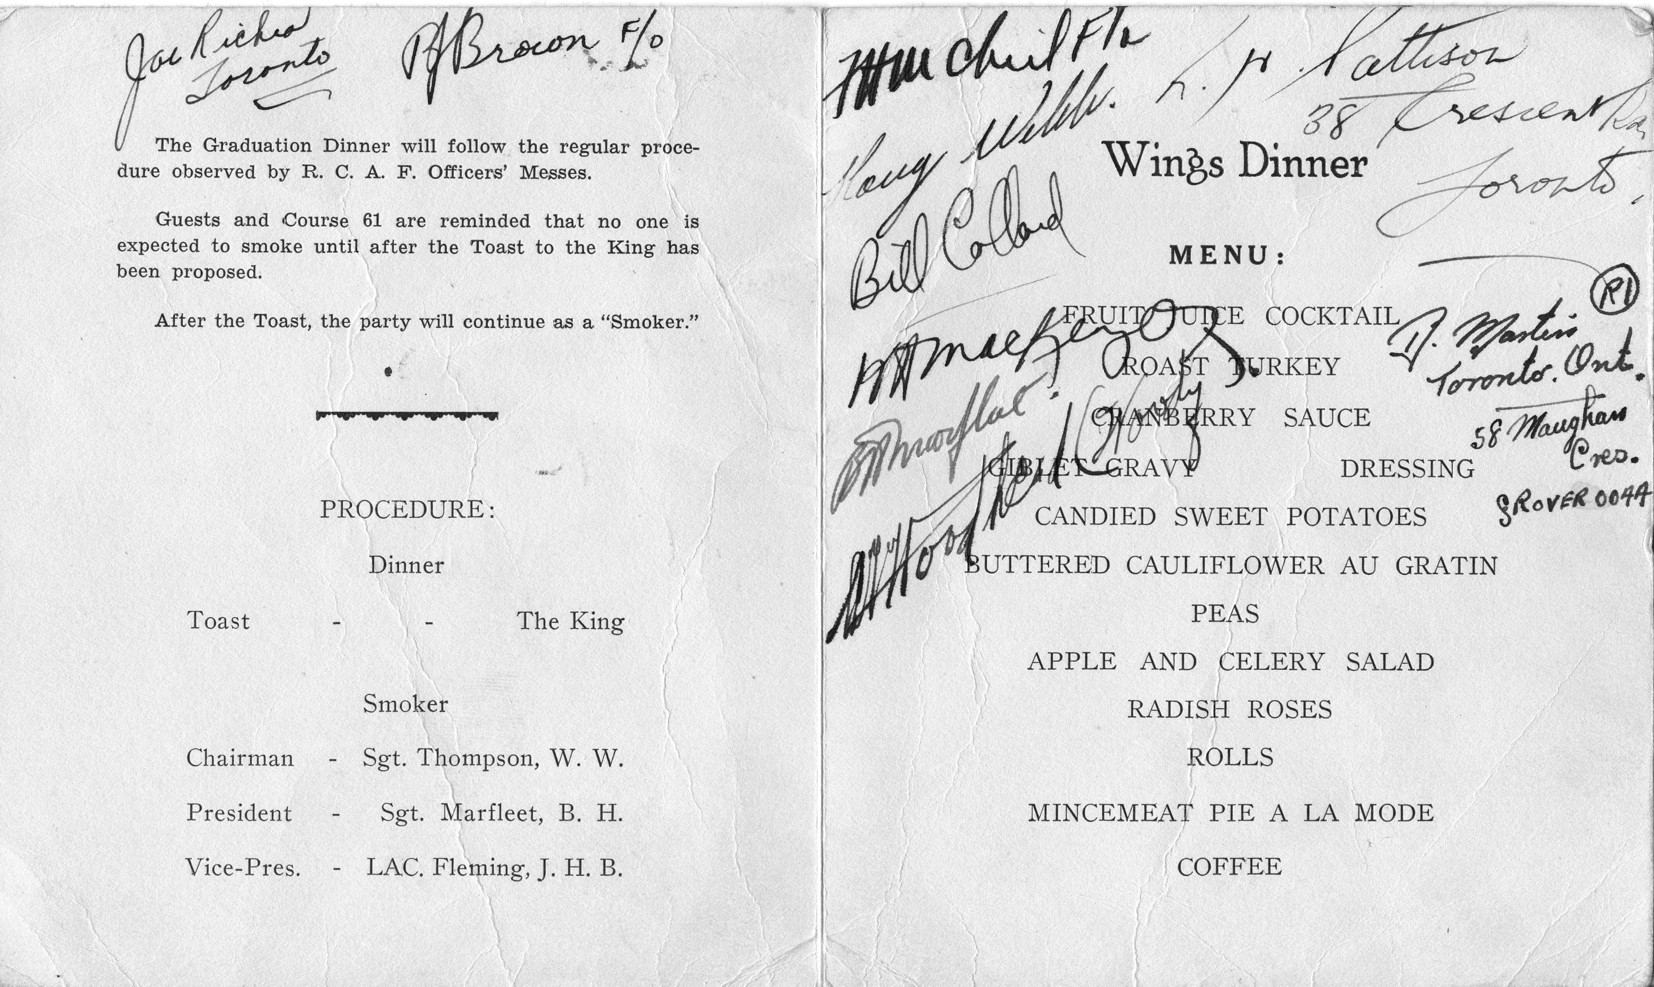 Toronto
Brown F/O
The Graduation Dinner will follow the regular proce-
dure observed by R. C. A. F. Officers' Messes.
Guests and Course 61 are reminded that no one is
expected to smoke until after the Toast to the King has
been proposed.
After the Toast, the party will continue as a “Smoker.”
PROCEDURE:
Dinner
Toast - - The King
Smoker
Chairman - Sgt. Thompson, W. W.
President - Sgt. Marfleet, B. H.
Vice-Pres. - LAC. Fleming, J. H. B.
Pattison
38 Crescent Rd
Toronto.
Webb.
Wings Dinner
Bill Collard
MENU:
R1
D. Martin
Toronto. Ont.
58 Maughan
Cres.
GROVER 0044
FRUIT JUICE COCKTAIL
ROAST TURKEY
CRANBERRY SAUCE
GIBLET GRAVY DRESSING
CANDIED SWEET POTATOES
BUTTERED CAULIFLOWER AU GRATIN
PEAS
APPLE AND CELERY SALAD
RADISH ROSES
ROLLS
MINCEMEAT PIE A LA MODE
COFFEE